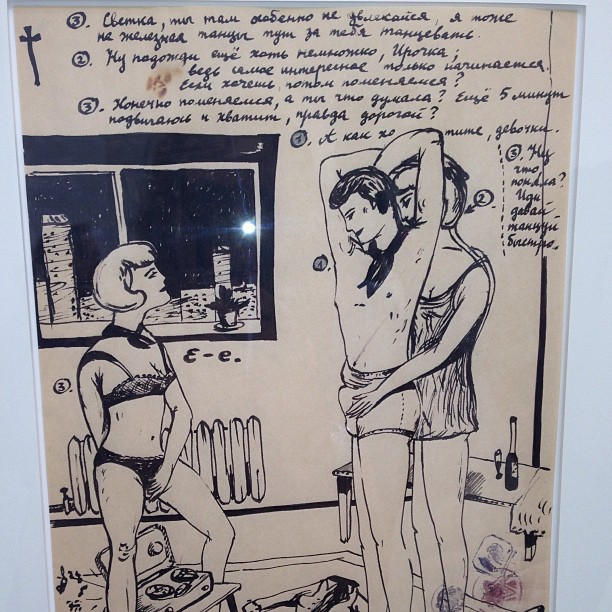 ③. Светка, ты там особенно не увлекайся, я тоже
не железная танцы тут за тебя танцевать.
②. Ну подожди ещё хоть немножко, Ирочка;
ведь самое интересное только начинается.
Если хочешь, потом поменяемся?
③. Конечно поменяемся, а ты что думала? Ещё 5 минут
подвигаюсь и хватит, правда дорогой?
①. А как хотите, девочки.
③. Ну
что
поняла?
Иди
давай
танцуй
быстро.
②
①.
Е-е.
③.